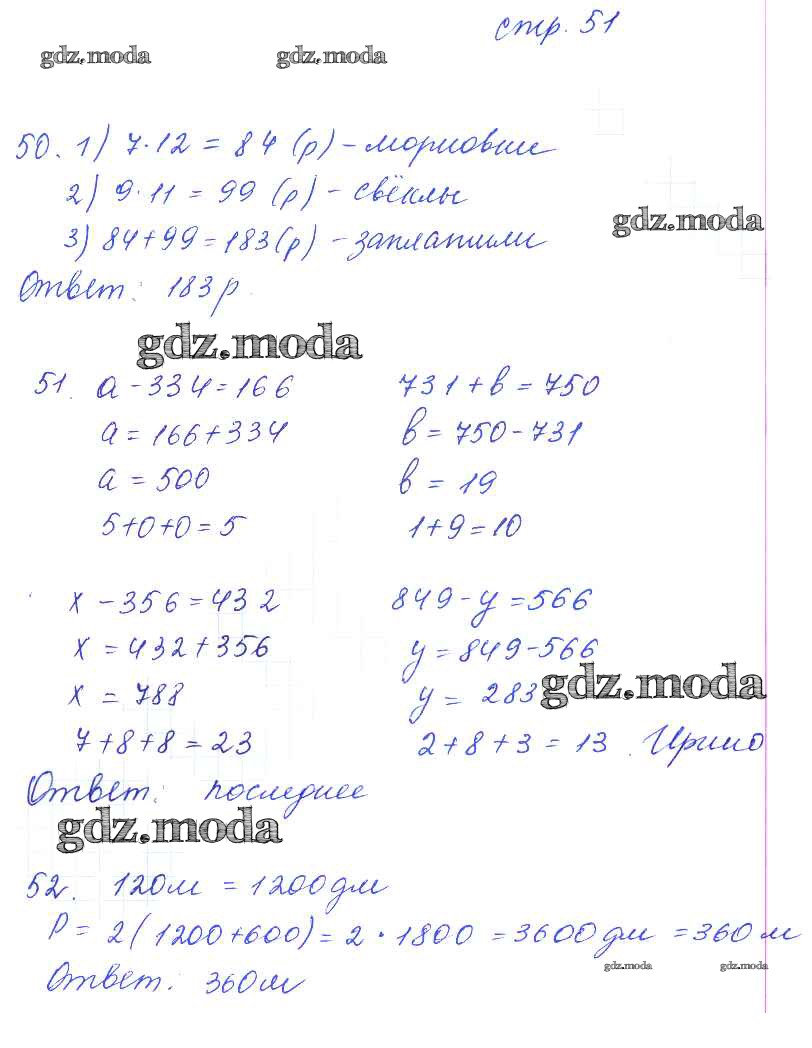 стр. 51
gdz.moda gdz.moda
50. 1) 7·12 = 84 (р) – морковь
2) 9·11 = 99 (р) – свёклы
gdz.moda
3) 84+99=183(р) – заплатили
Ответ: 183р.
gdz.moda
51. a-334=166 731+b=750
a=166+334 b=750-731
a=500 b=19
5+0+0=5 1+9=10
x-356=432 849-y=566
x=432+356 y=849-566
x=788 y=283
gdz.moda
7+8+8=23 2+8+3=13.
Ответ: последнее
gdz.moda
52. 120м = 1200дм
P=2(1200+600)=2·1800=3600дм=360м
gdz.moda gdz.moda
Ответ: 360м